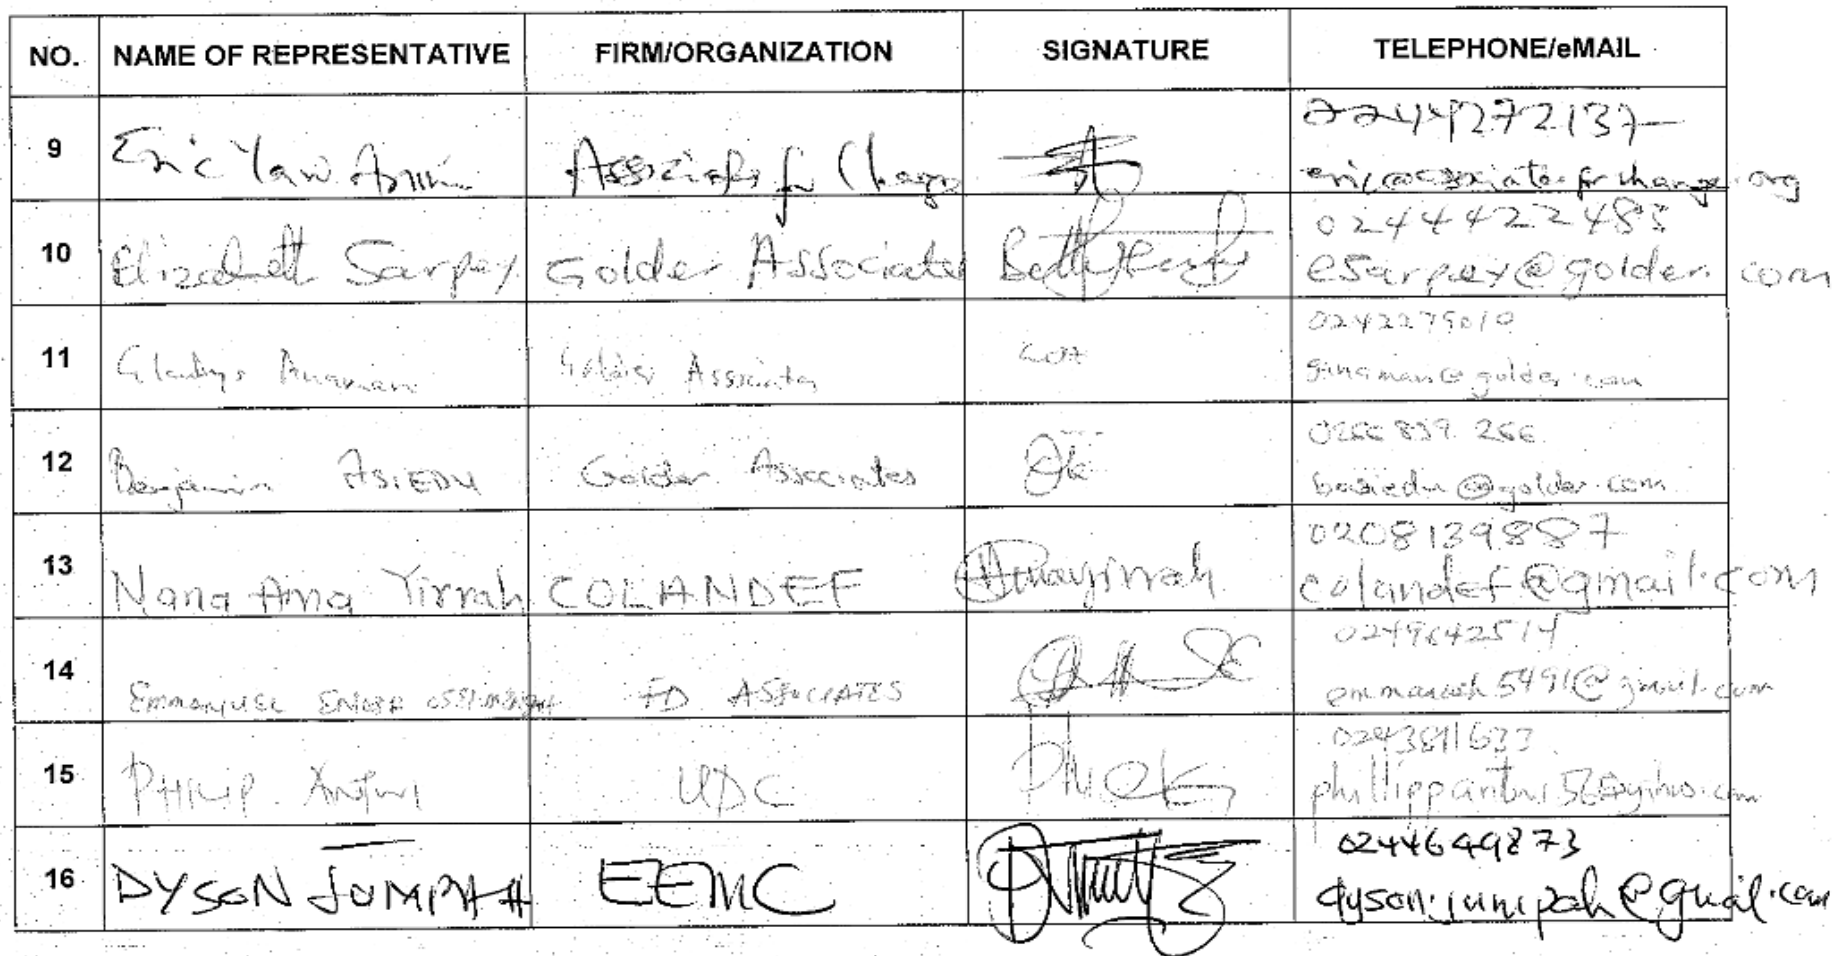 NO. NAME OF REPRESENTATIVE FIRM/ORGANIZATION SIGNATURE TELEPHONE/eMAIL
9 Eric Yaw Associates for Change 0244272137
eric@associatesforchange.org
10 Elizabeth Sarpey Golder Associates 0244422483
esarpey@golder.com
11 Gladys Anaman Golder Associates 0242279010
ganaman@golder.com
12 Benjamin ASIEDU Golder Associates 0266 839 266
basiedu@golder.com
13 Nana Ama Yirrah COLANDEF 0208139887
colandef@gmail.com
14 EMMANUEL FD ASSOCIATES 0249642514
@gmail.com
15 PHILIP Antwi UDC
phillippantwi56@yahoo.com
16 DYSON JUMPAH EEMC 0244649873
dyson.jumpah@gmail.com